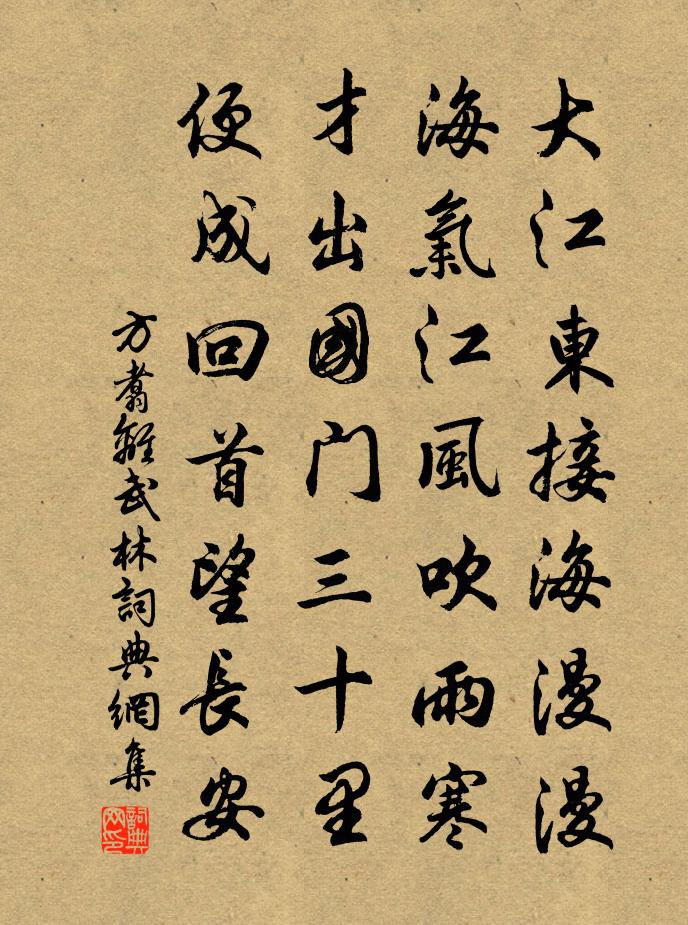 大江東接海漫漫
海氣江風吹雨寒
才出國门三十里
便成回首望長安
方翥離武林詞典網集
詞典网印